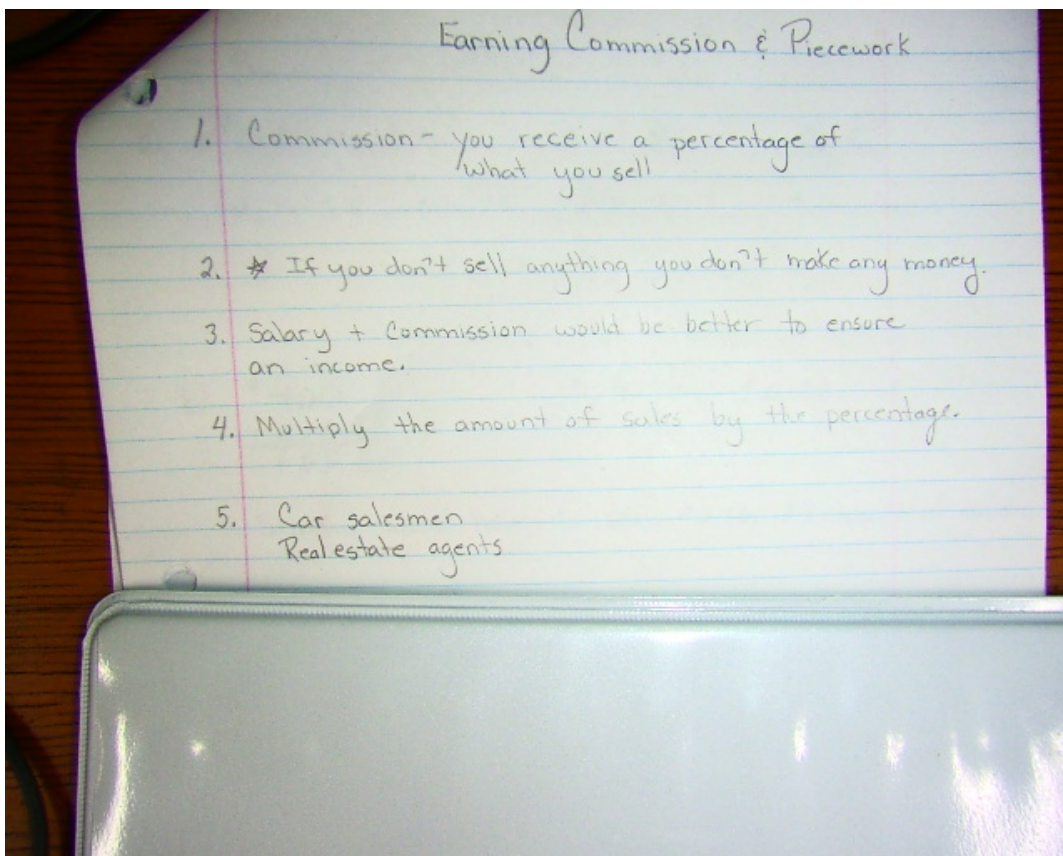 Earning Commission & Piecework
1. Commission - you receive a percentage of
what you sell
2. * If you don't sell anything you don't make any money.
3. Salary + Commission would be better to ensure
an income.
4. Multiply the amount of sales by the percentage.
5. Car salesmen
Real estate agents